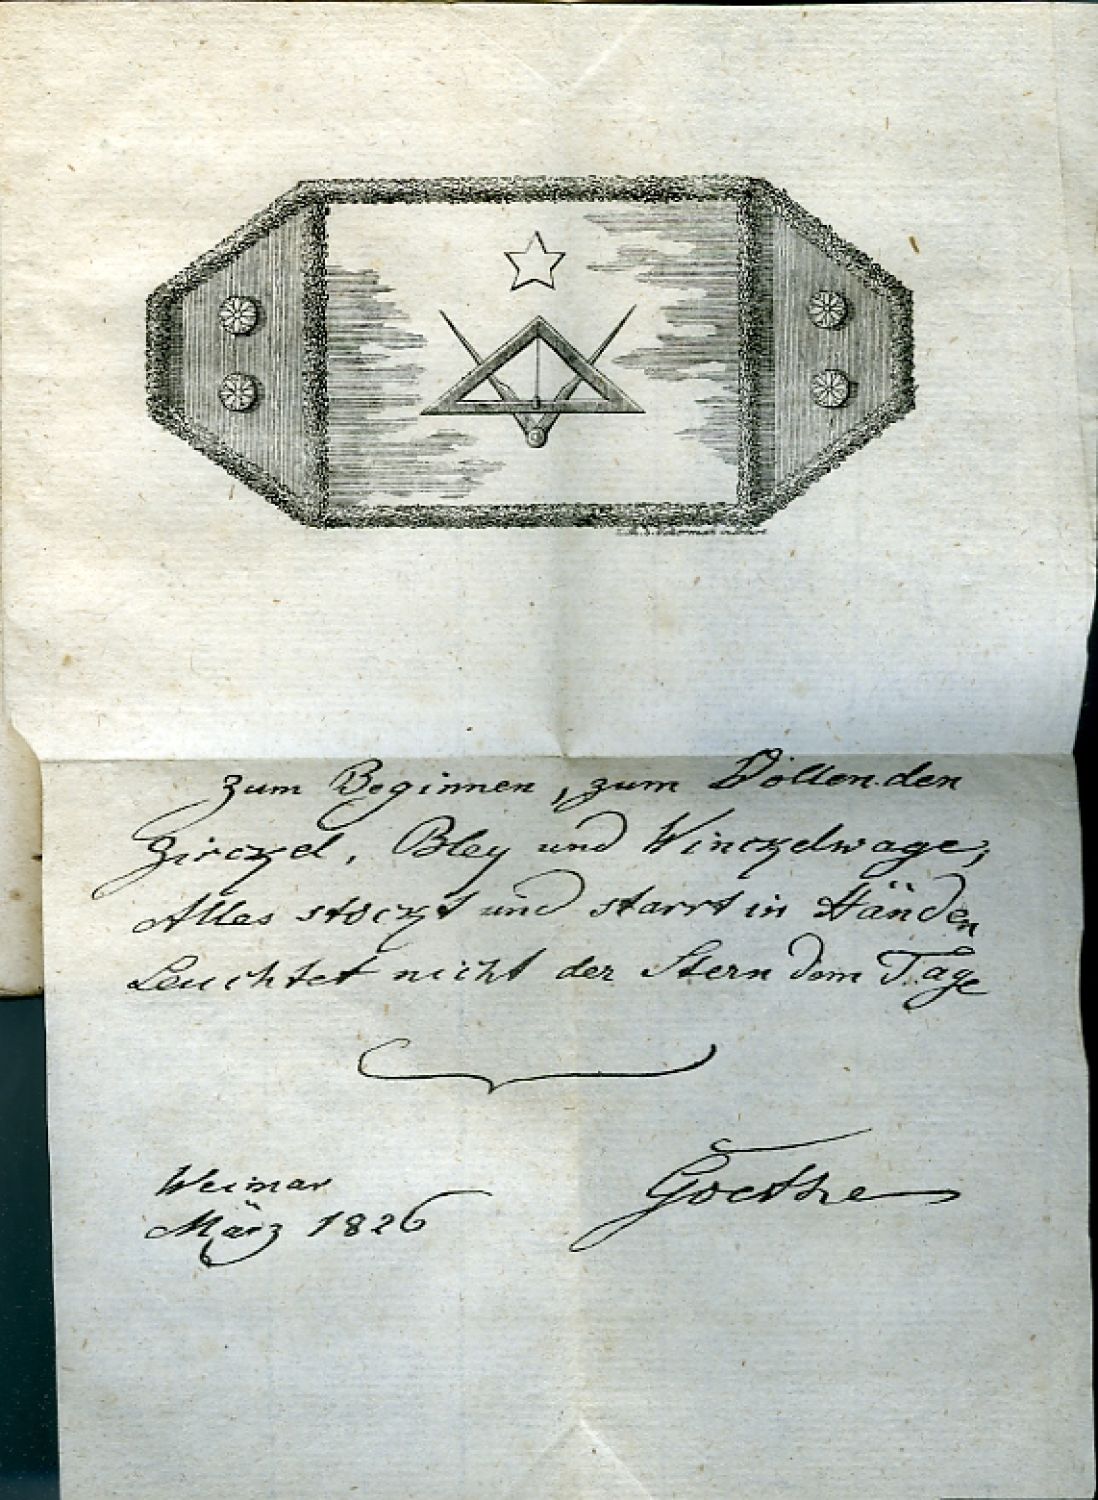 Zum Beginnen, zum Vollenden
Zirckel, Bley und Winckelwage;
Alles stockt und starrt in Händen
Leuchtet nicht der Stern dem Tage
Weimar
März 1826
Goethe